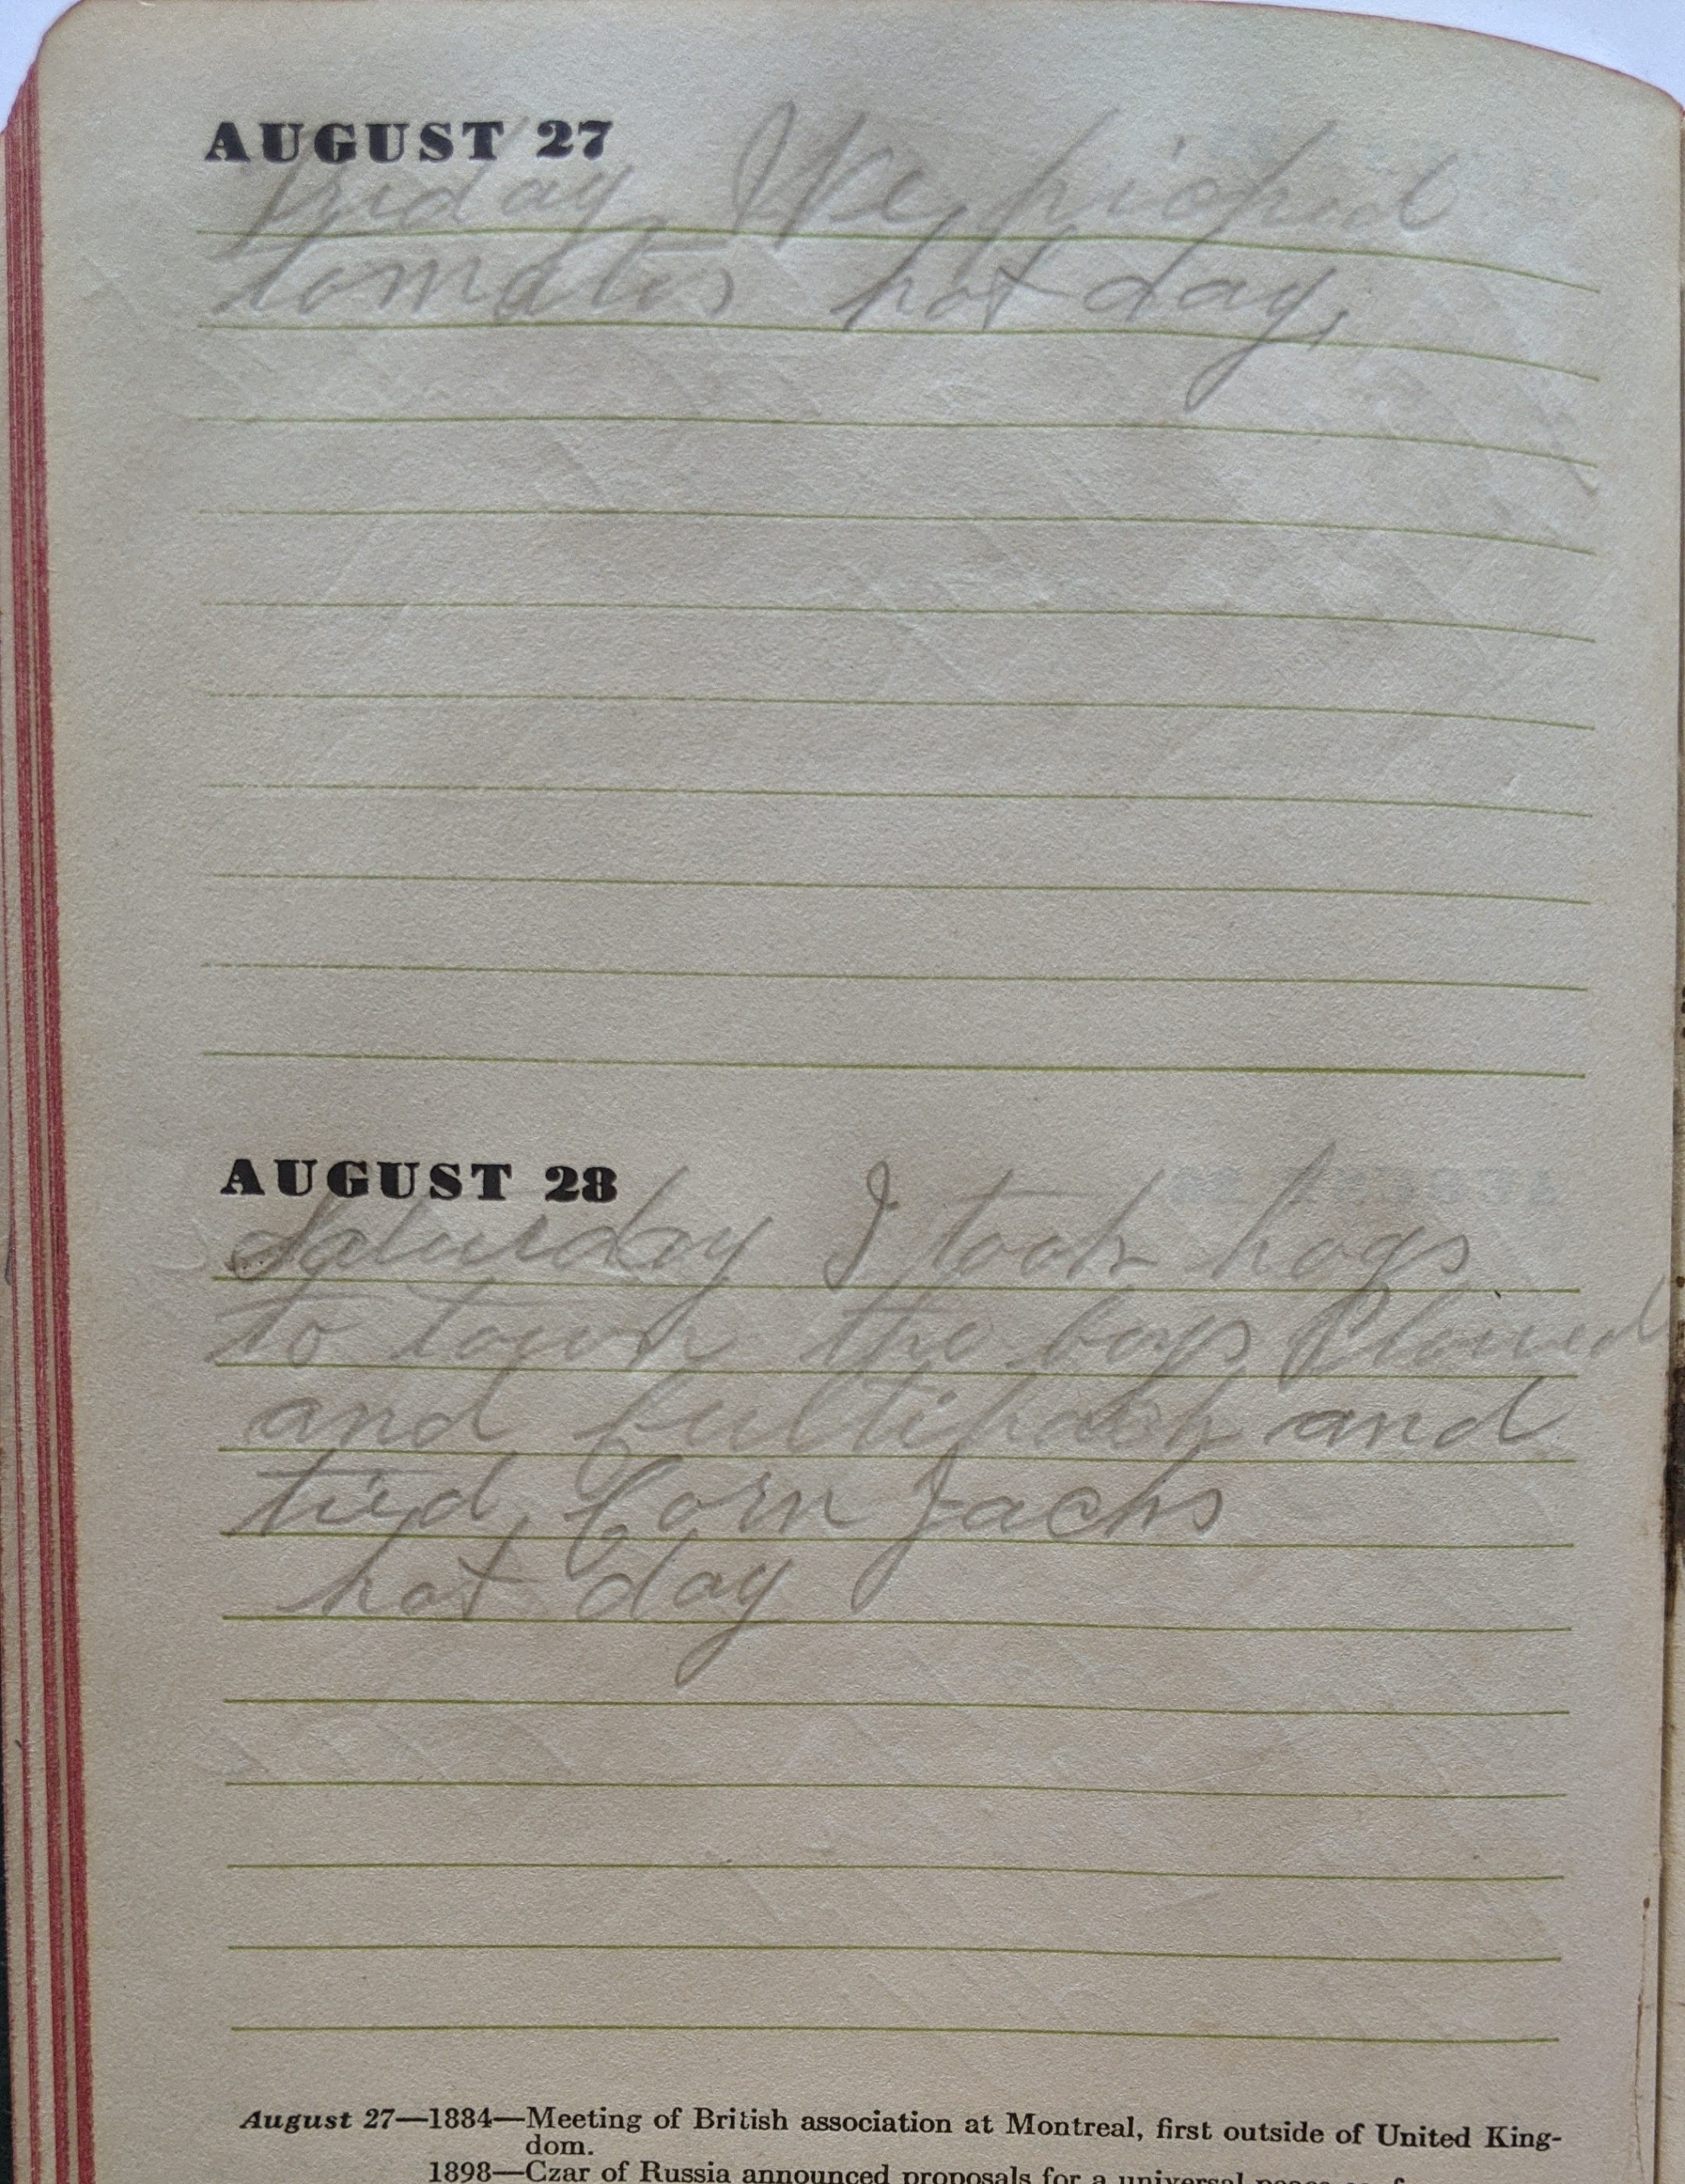 AUGUST 27
Friday, We, picked
tomatos hot day,
AUGUST 28
Saturday I took hogs
to town the boys Plowed
and Cultipack and
tied Corn Jacks
hot day
August 27—1884—Meeting of British association at Montreal, first outside of United King-
dom.
1898—Czar of Russia announced proposals for a universal